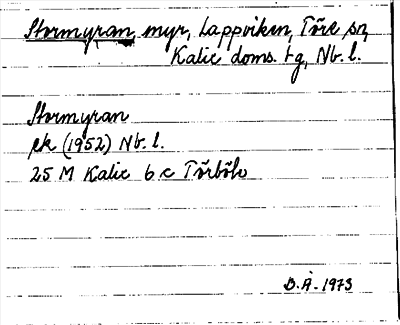 Stormyran, myr, Lappviken, Töre sn,
Kalix doms. tg, Nb. l.
Stormyran
ek (1952) Nb. l.
25 M Kalix 6 c Törböle
B.Å. 1973